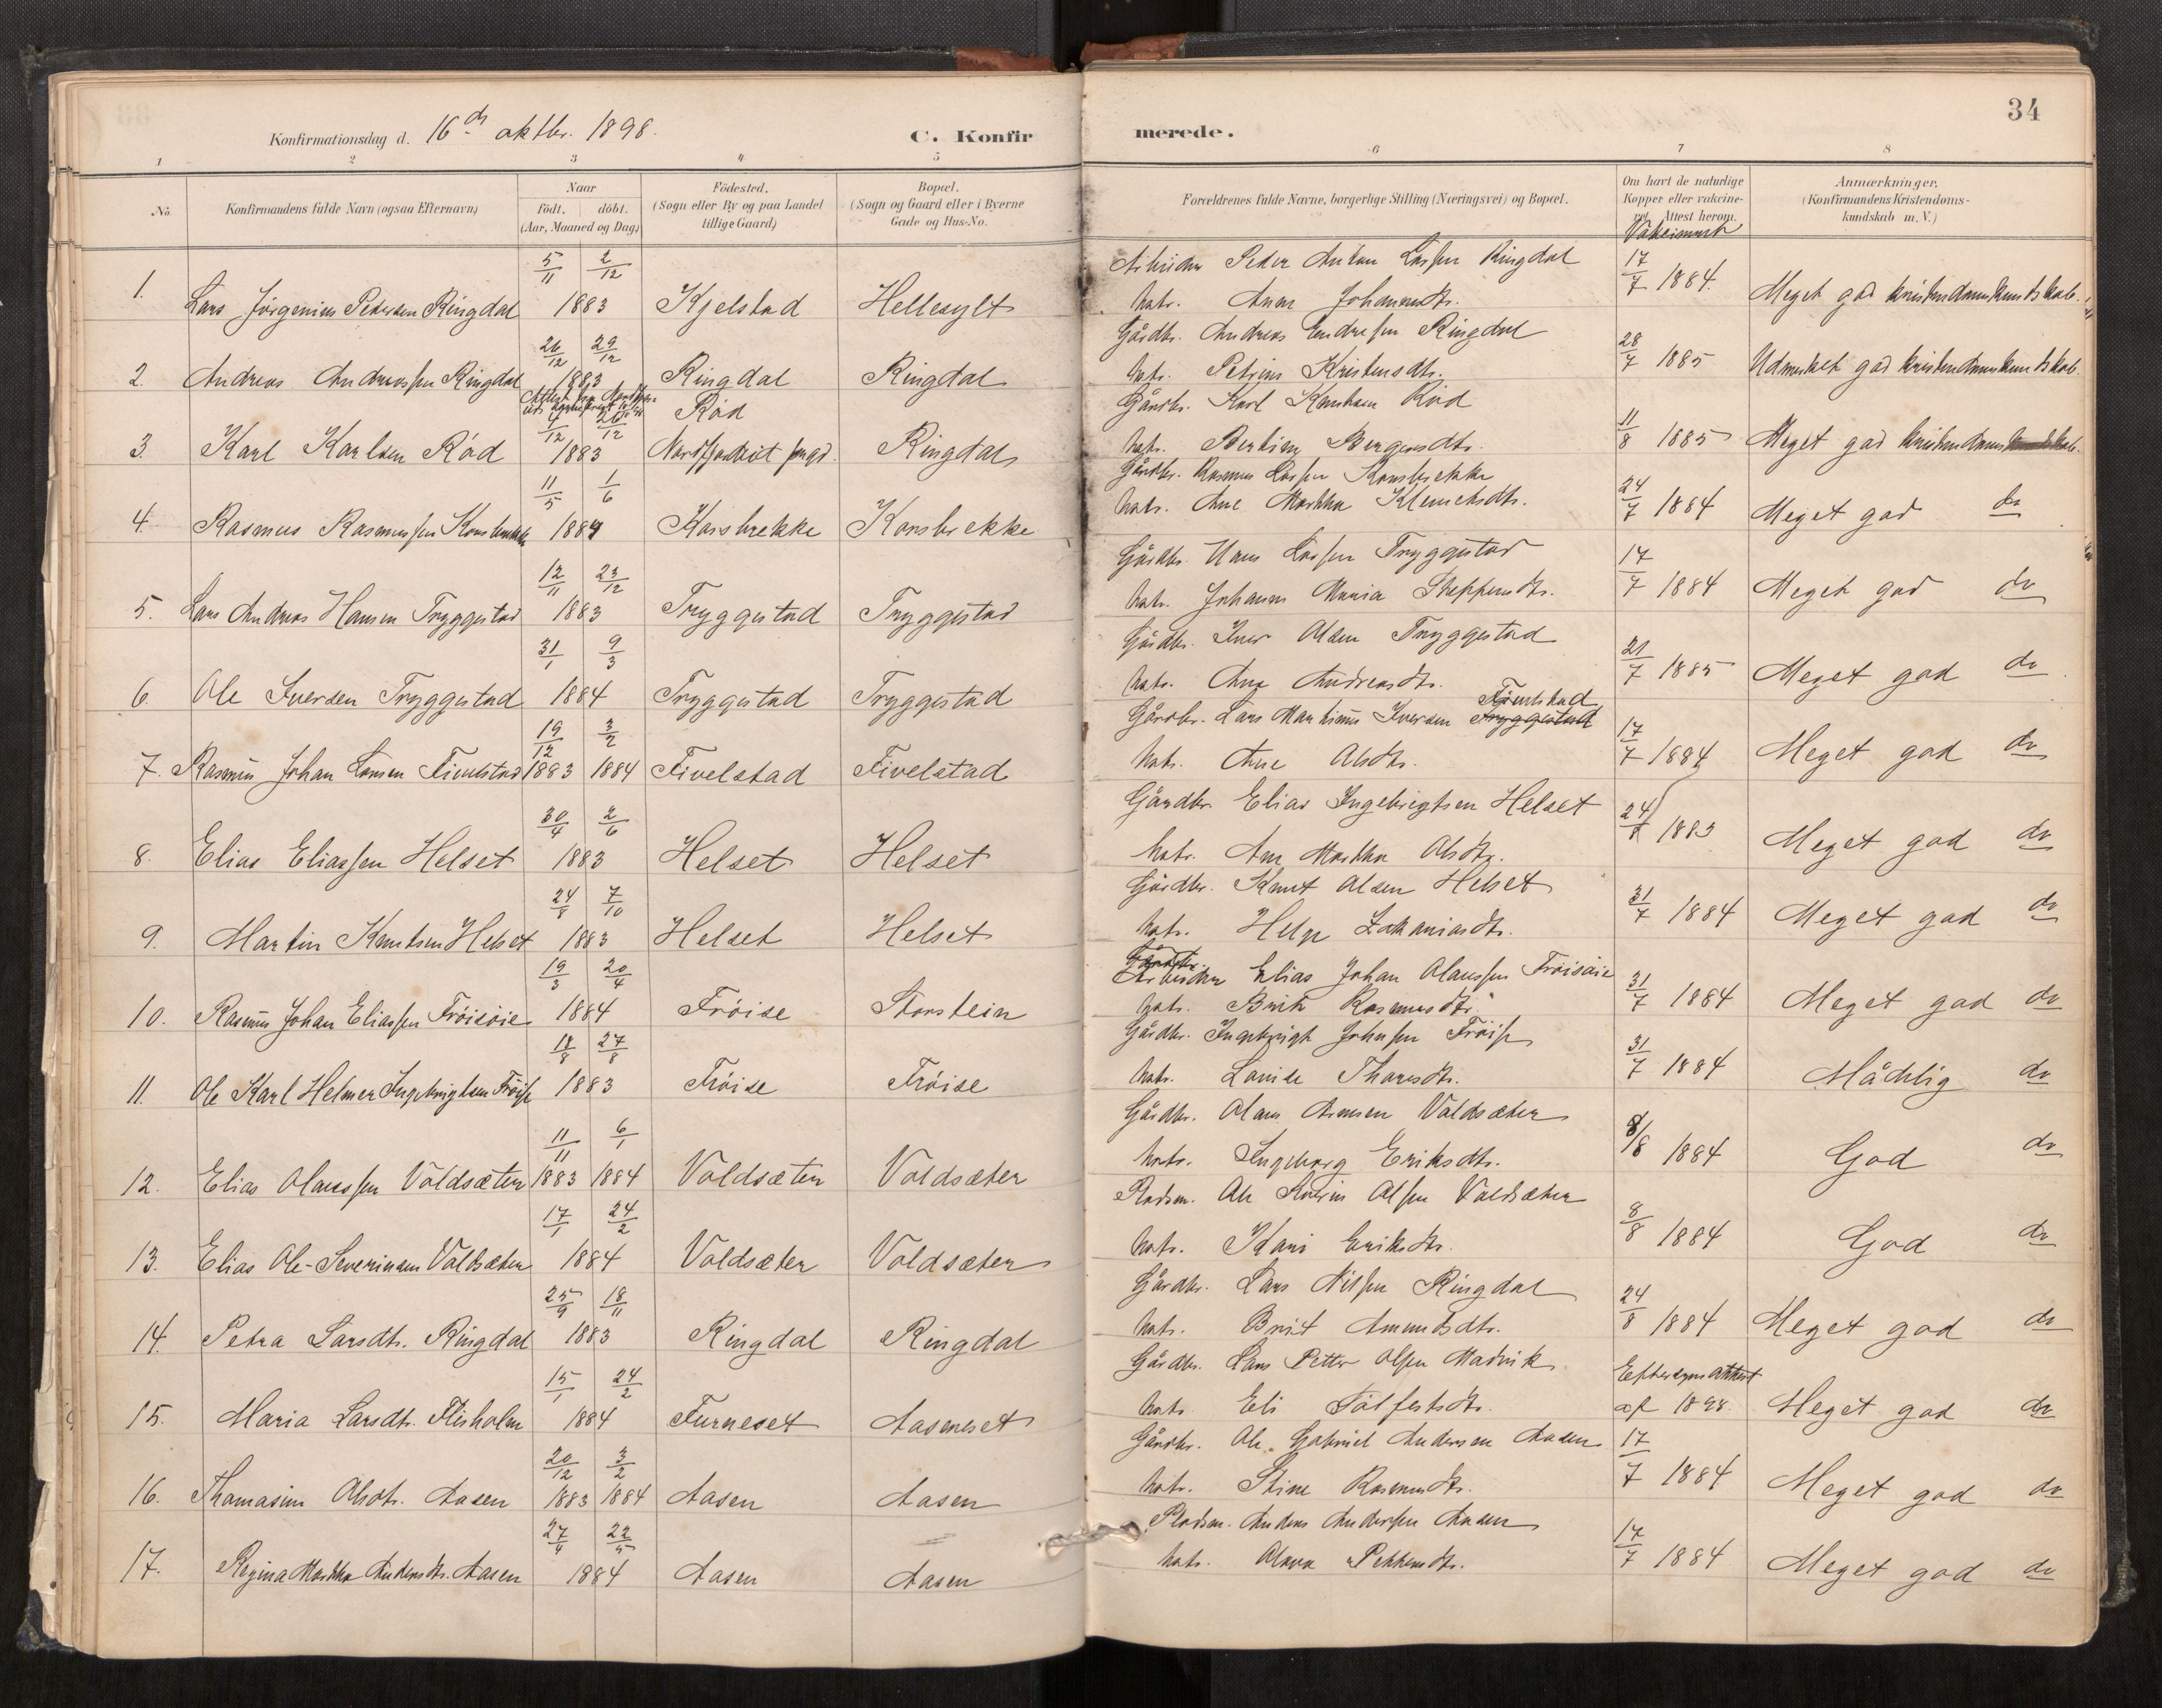 34
Konfirmationsdag d. 16de oktbr. 1898.
C. Konfirmerede.
1 2 3 4 5 6 7 8
No.
Konfirmandens fulde Navn (ogsaa Efternavn)
Naar
født. döbt.
(Aar, Maaned og Dag)
Födested.
(Sogn eller By og paa Landet
tillige Gaard)
Bopæl.
(Sogn og Gaard eller i Byerne
Gade og Hus-No.
Forældrenes fulde Navne, borgerlige Stilling (Næringsvei) og Bopæl.
Om havt de naturlige
Kopper eller vakcine-
ret. Attest herom.
Anmærkninger,
(Konfirmandens Kristendoms-
kundskab m. V.)
5/11 2/12 Arbeider Peder Anton Larssen Ringdal 17/7 1884.
1. Lars Jørgenius Pedersen Ringdal 1883 Kjelstad Hellesylt Hstr. Anne Johannesdtr. Meget god kristendomskundskab.
26/12 29/12 Gårdbr. Andreas Endresen Ringdal 28/7 1885
2. Andreas Andreassen Ringdal 1883 Ringdal Ringdal Hstr. Petrine Kristensdtr. Udmerket god kristendomskundskab.
7/12 26/12 Rød Gårdbr. Karl Knutsen Rød 11/8 1885
3. Karl Karlsen Rød 1883 Ringdal Hstr. Berthine Bergersdtr. Meget god kristendomskundskab.
11/5 1/6 Gårdbr. Rasmus Larssen Korsbrekke 24/7 1884
4. Rasmus Rasmussen Korsbrekke 1884 Korsbrekke Korsbrekke Hstr. Ane Martha Klemetsdtr. Meget god do
12/11 23/12 Gårdbr. Hans Larssen Tryggestad 17/7 1884
5. Lars Andreas Hansen Tryggestad 1883 Tryggestad Tryggestad Hstr. Johanne Maria Steffensdtr. Meget god do
31/1 9/3 Gårdbr. Iver Olsen Tryggestad 21/7 1885
6. Ole Iversen Tryggestad 1884 Tryggestad Tryggestad Hstr. Ane Andreasdtr. Meget god do
19/12 3/2 Gårdbr. Lars Martinus Iversen Tryggestad Fivelstad 17/7 1884
7. Rasmus Johan Larsen Fivelstad 1883 1884 Fivelstad Fivelstad Hstr. Ane Olsdtr. Meget god do
30/4 2/6 Gårdbr. Elias Ingebrigtsen Helset 24/8 1883
8. Elias Eliassen Helset 1883 Helset Helset Hstr. Ane Martha Olsdtr. Meget god do
24/8 7/10 Gårdbr. Knut Olsen Helset 31/7 1884
9. Martin Knutsen Helset 1883 Helset Helset Hstr. Helge Zakariasdtr. Meget god do
19/3 20/4 Gårdbr. Arbeider Elias Johan Olaussen Frøisøie 31/7 1884
10. Rasmus Johan Eliassen Frøisøie 1884 Frøise Storstein Hstr. Brite Rasmusdtr. Meget god do
18/8 27/8 Gårdbr. Ingebrigt Johnsen Frøise 31/7 1884
11. Ole Karl Helmer Ingebrigtsen Frøise 1883 Frøise Frøise Hstr. Lovise Thoresdtr. Mådelig do
11/11 6/1 Gårdbr. Olaus Arnesen Voldsæter 8/8 1884
12. Elias Olaussen Voldsæter 1883 1884 Voldsæter Voldsæter Hstr. Ingeborg Eriksdtr. God do
17/1 24/2 Pladsm. Ole Severin Olssen Voldsæter 8/8 1884
13. Elias Ole-Severinsen Voldsæter 1884 Voldsæter Voldsæter Hstr. Kari Eriksdtr. God do
25/9 18/11 Gårdbr. Lars Nilssen Ringdal 24/8 1884
14. Petra Larsdtr. Ringdal 1883 Ringdal Ringdal Hstr. Brit Amundsdtr. Meget god do
15/1 24/2 Gårdbr. Lars Petter Olssen Madvik Eftersynsattest
15. Maria Larsdtr. Flisholm 1884 Furneset Aasneset Hstr. Eli af 1898. Meget god do
20/12 3/2 Gårdbr. Ole Gabriel Andersen Aasen 17/7 1884
16. Thomasine Olsdtr. Aasen 1883 1884 Aasen Aasen Hstr. Stine Rasmusdtr. Meget god do
27/4 22/5 Pladsm. Anders Anderssen Aasen 17/7 1884
17. Regina Martha Andersdtr. Aasen 1884 Aasen Aasen Hstr. Olava Pettersdtr. Meget god do